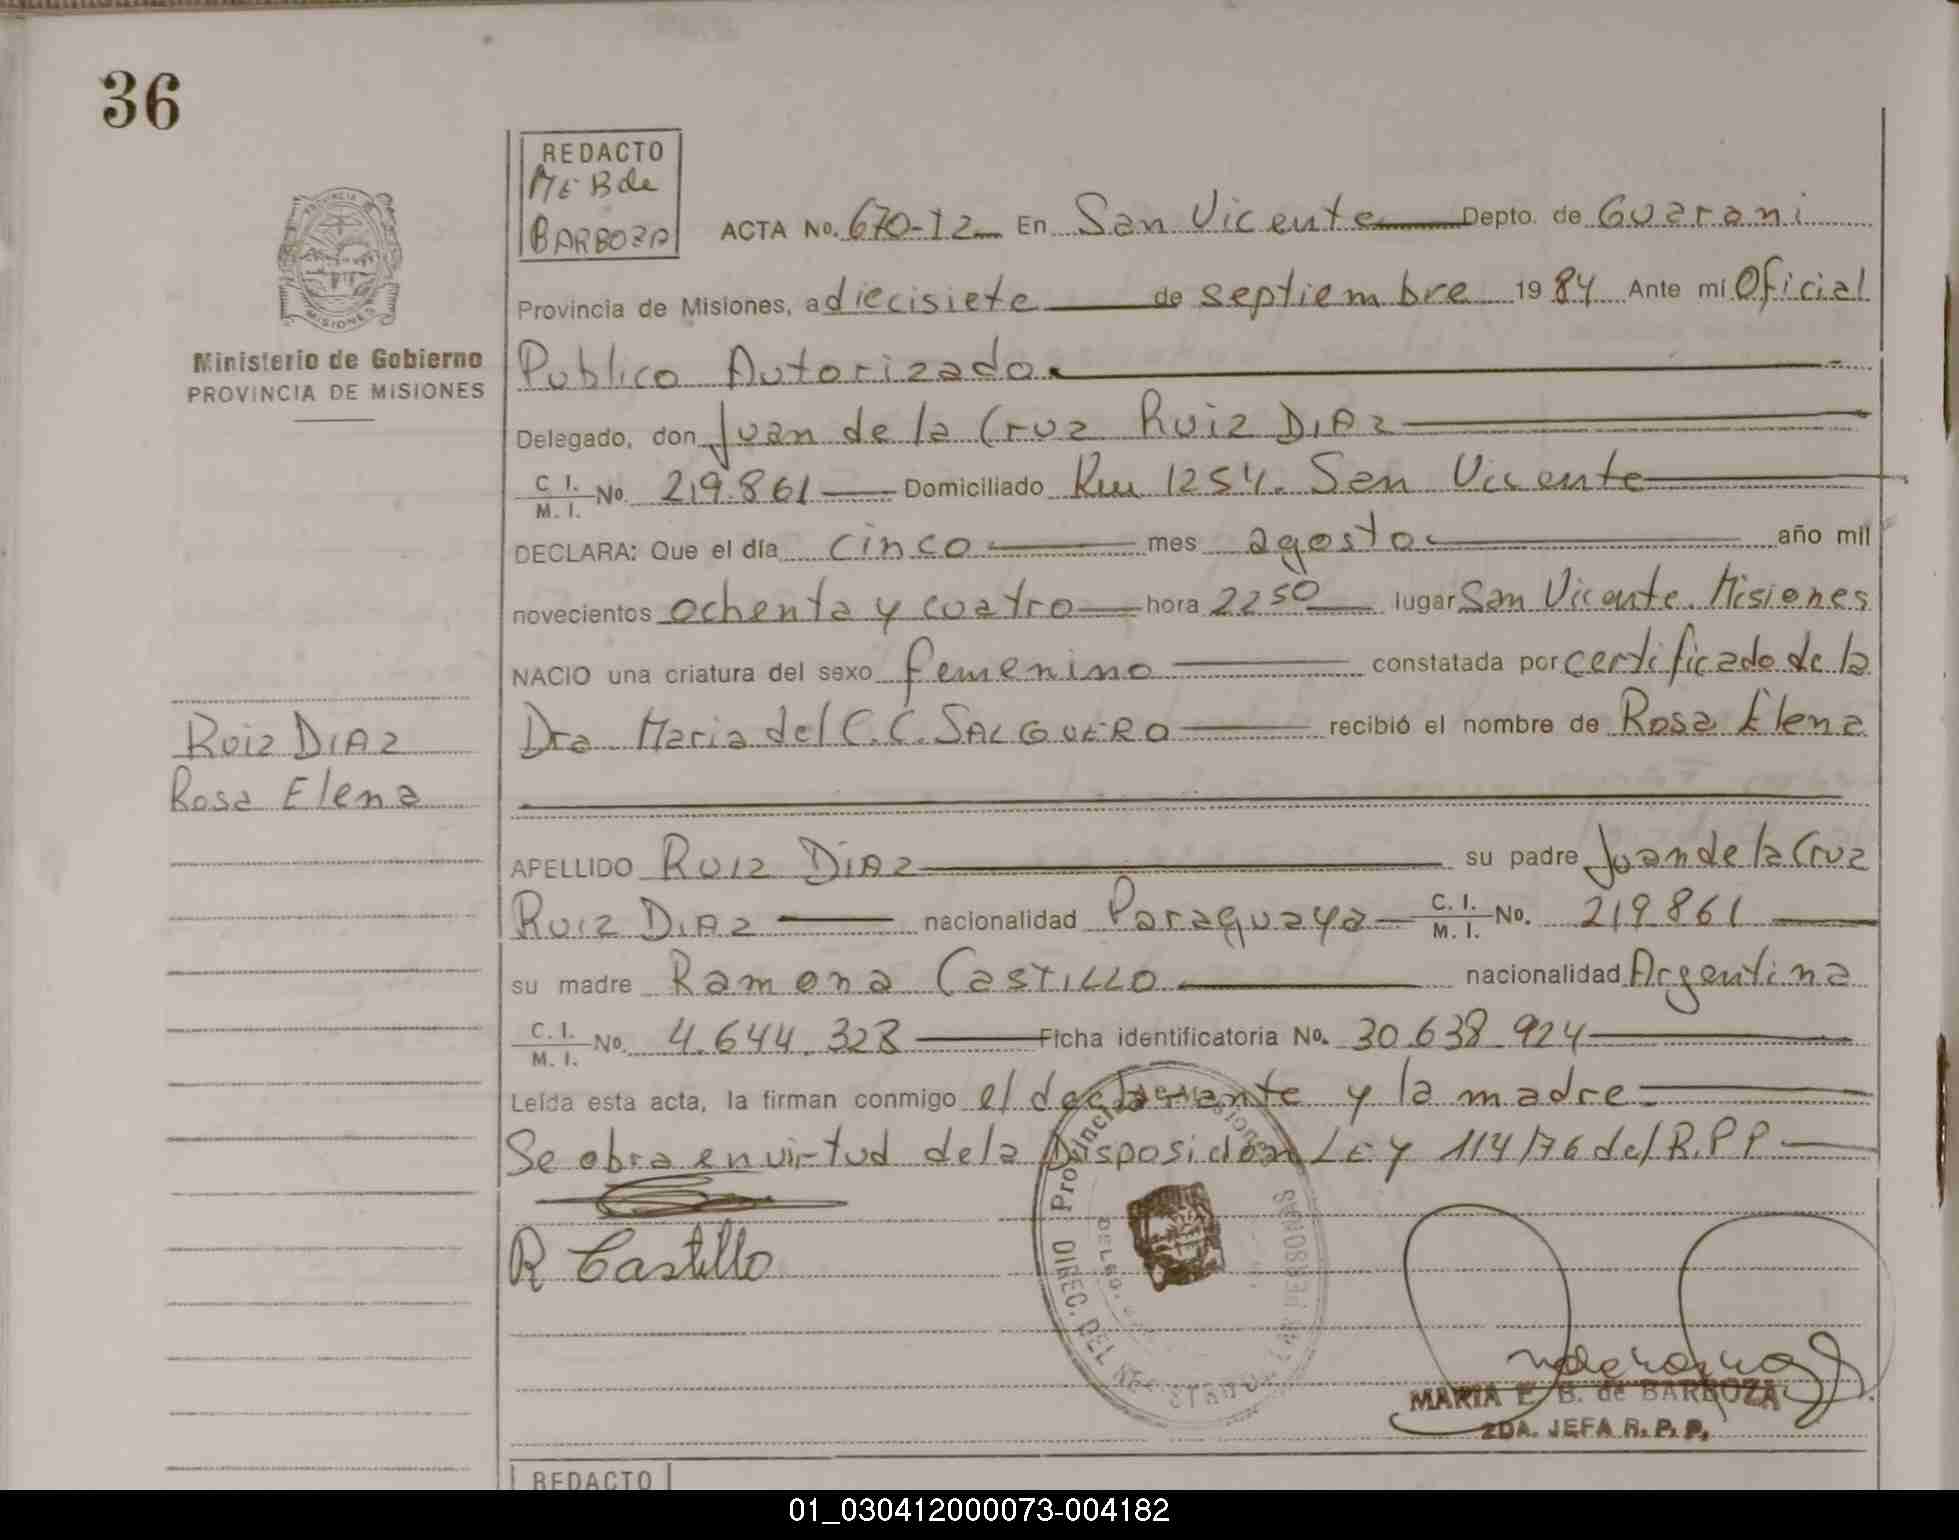 36
REDACTO
ME B de
BARBOZA
PROVINCIA DE
MISIONES
Ministerio de Gobierno
PROVINCIA DE MISIONES
ACTA No. 670-12 En San Vicente Depto. de Guarani
Provincia de Misiones, a diecisiete de septiembre 1984 Ante mí Oficial
Publico Autorizado.
Delegado, don Juan de la Cruz Ruiz DIAZ
C I. M. I. No. 219.861 Domiciliado Km 1254. San Vicente
DECLARA: Que el día cinco mes agosto año mil
novecientos ochenta y cuatro hora 2250 lugar San Vicente. Misiones
NACIO una criatura del sexo femenino constatada por certificado de la
Dra Maria del C. C. SALGUERO recibió el nombre de Rosa Elena
Ruiz DIAZ
Rosa Elena
APELLIDO RUIZ DIAZ su padre Juan de la Cruz
RUIZ DIAZ nacionalidad Paraguaya C. I. M. I. No. 219861
su madre Ramona CASTILLO nacionalidad Argentina
C. I. M. I. No. 4.644.328 Ficha identificatoria No. 30.638.924
Leída esta acta, la firman conmigo el declarante y la madre.
Se obra en virtud de la Disposición Ley 114/76 del R.P.P
R Castillo
Provincia Misiones
DIREC. DEL REGISTRO
DELEG.
PERSONAS
MARIA E. B. de BARBOZA
2DA. JEFA R. P. P.
REDACTO
01_030412000073-004182